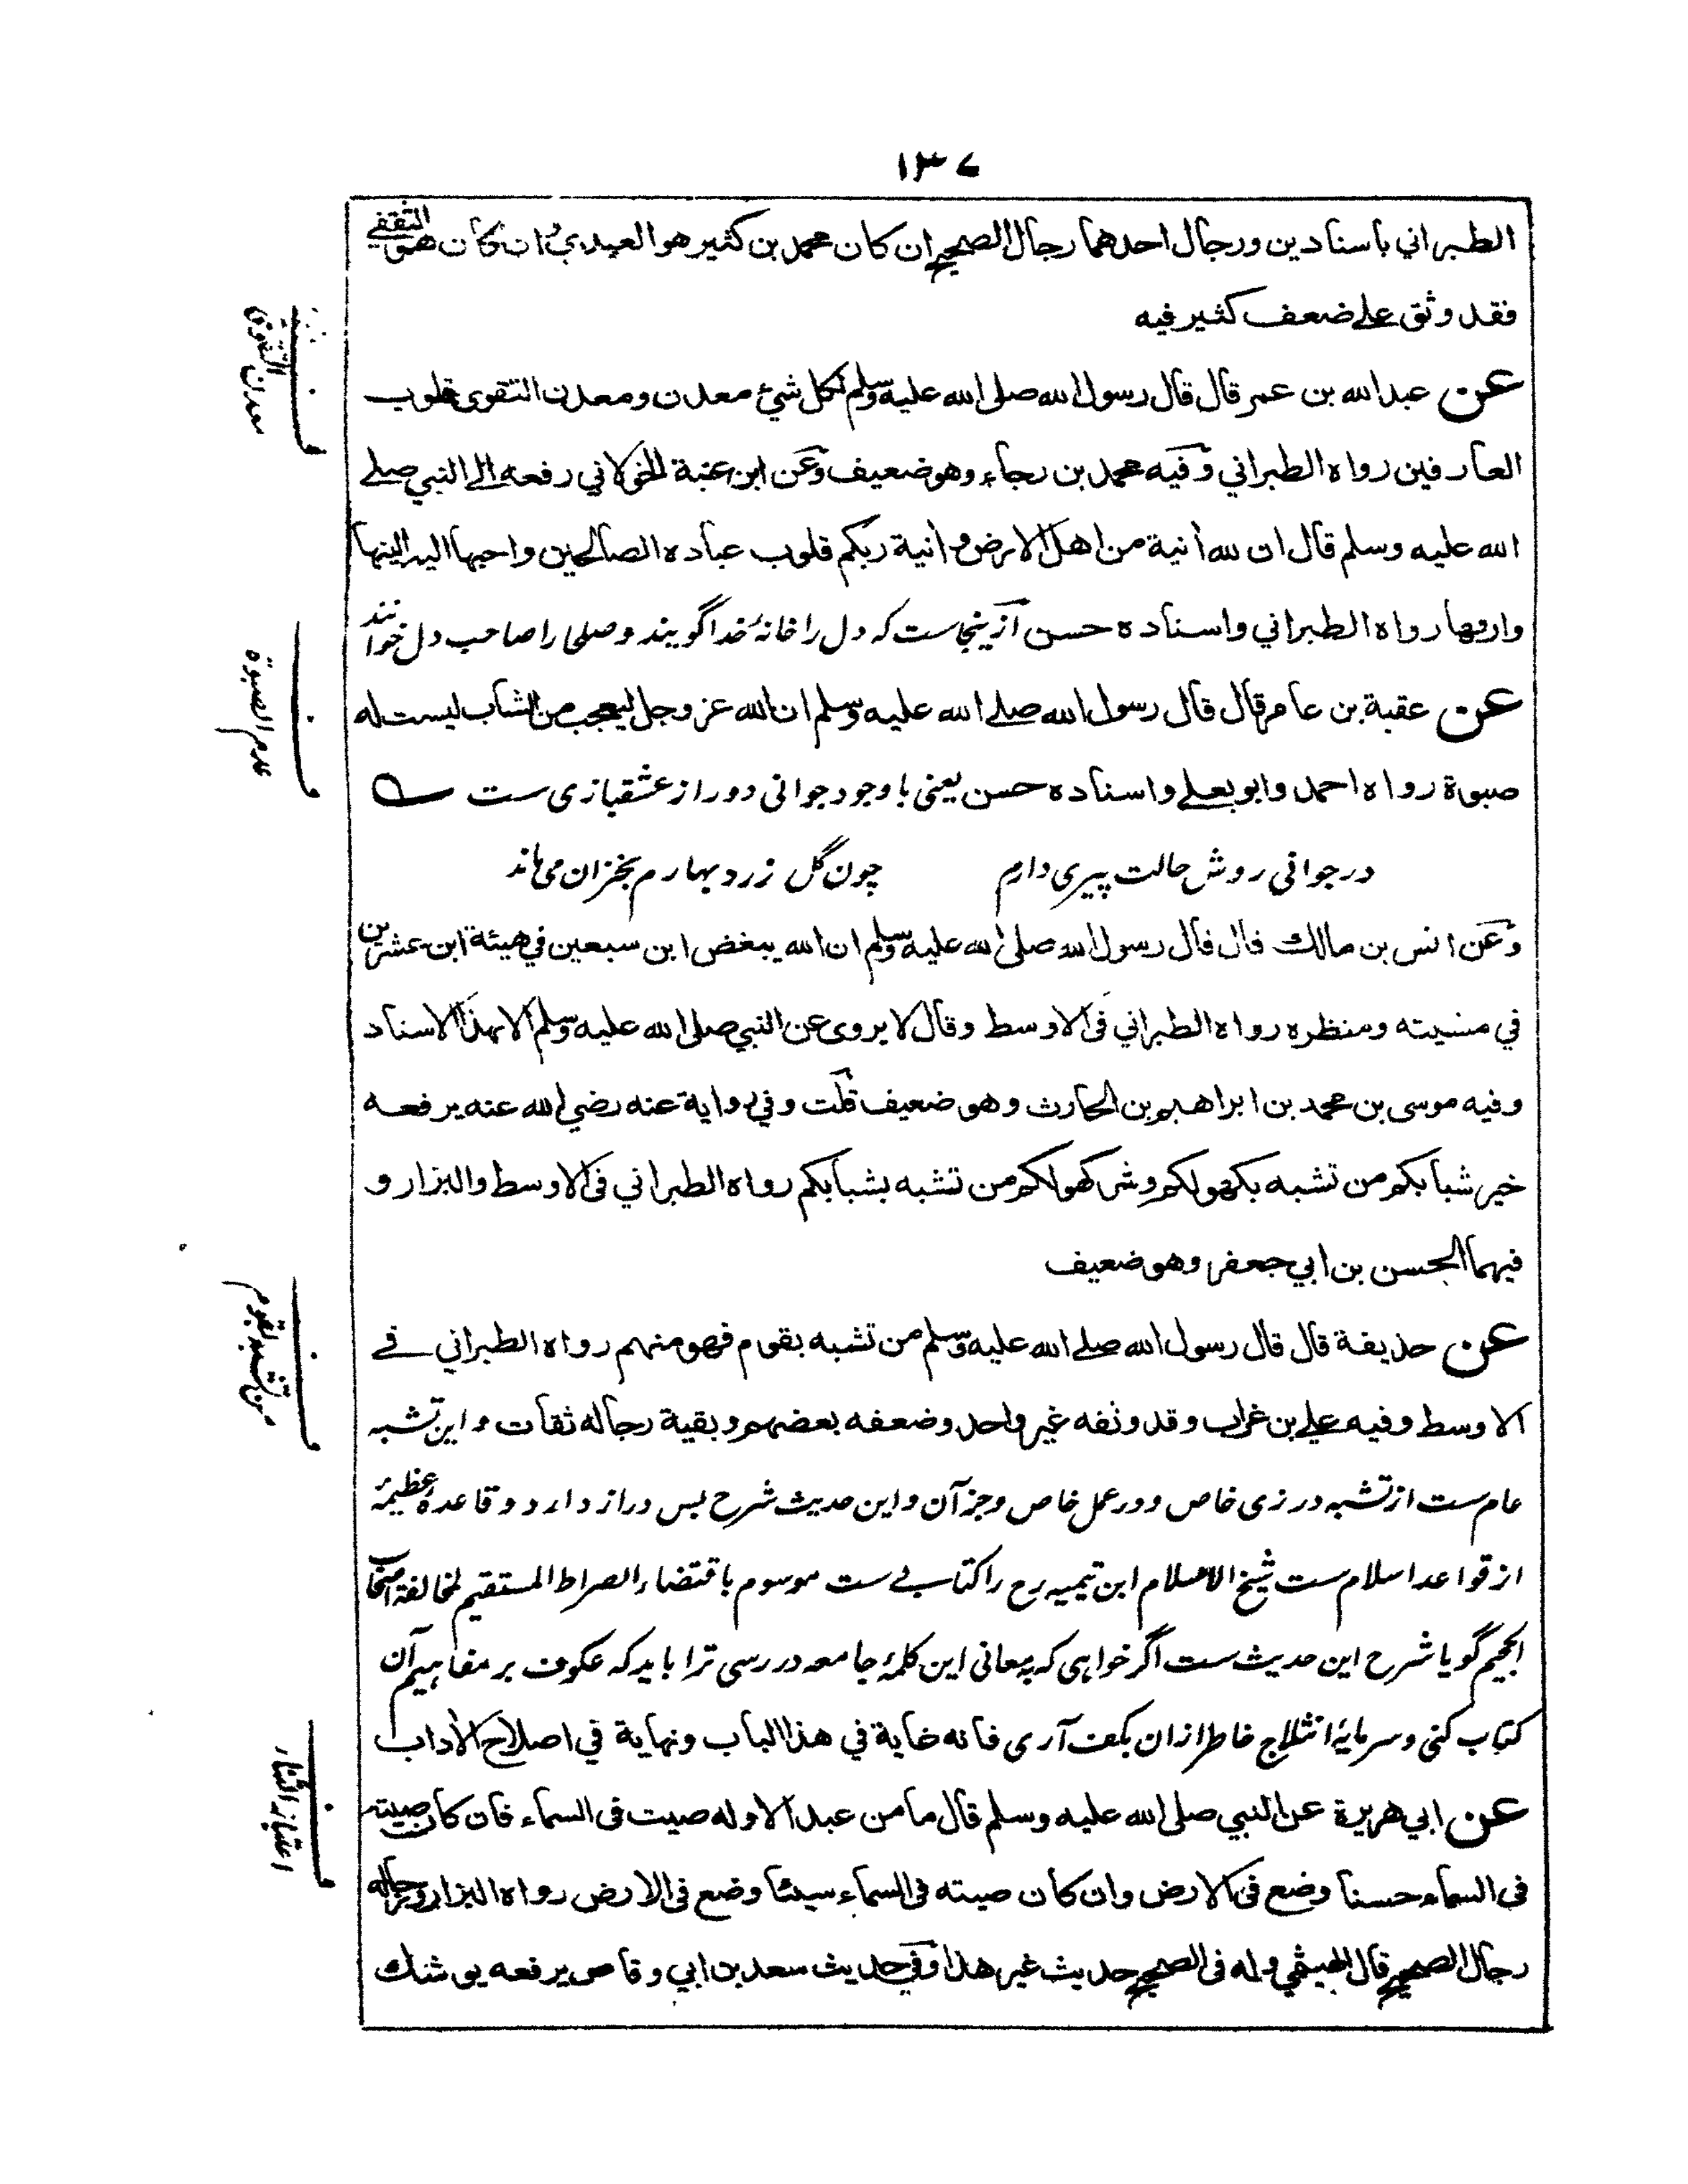 ١٣٧
الطبراني باسنادين ورجال احدهما رجال الصحيح ان كان محمد بن كثير هو العبدي وان كان هو الثقفي
فقد وثق على ضعف كثير فيه
عن عبد الله بن عمر قال قال رسول الله صلى الله عليه وسلم لكل شئ معدن ومعدن التقوى قلوب
العارفين رواه الطبراني وفيه محمد بن رجاء وهو ضعيف وعن ابن عنبة الخولاني رفعه الى النبي صلى
الله عليه وسلم قال ان لله آنية من اهل الارض وآنية ربكم قلوب عباده الصالحين واحبها اليه الينها
وارقها رواه الطبراني واسناده حسن ازينجاست كه دل را خانۀ خدا گويند و صلحا را صاحب دل خوانند
عن عقبة بن عامر قال قال رسول الله صلى الله عليه وسلم ان الله عز وجل ليعجب من الشاب ليست له
صبوة رواه احمد وابو يعلى واسناده حسن يعنى با وجود جوانى دور از عشقبازى ست
در جوانى روش حالت پيرى دارم چون گل زرد بهارم بخزان مى ماند
وعن انس بن مالك قال قال رسول الله صلى الله عليه وسلم ان الله يبغض ابن سبعين في هيئة ابن عشرين
في مشيته ومنظره رواه الطبراني فى الاوسط وقال لا يروى عن النبي صلى الله عليه وسلم الا بهذا الاسناد
وفيه موسى بن محمد بن ابراهيم بن الحارث وهو ضعيف قلت وفي رواية عنه رضي الله عنه يرفعه
خير شبابكم من تشبه بكهولكم وشر كهولكم من تشبه بشبابكم رواه الطبراني فى الاوسط والبزار و
فيهما الحسن بن ابي جعفر وهو ضعيف
عن حذيفة قال قال رسول الله صلى الله عليه وسلم من تشبه بقوم فهو منهم رواه الطبراني في
الاوسط وفيه علي بن غراب وقد وثقه غير واحد وضعفه بعضهم وبقية رجاله ثقات و اين تشبه
عام ست از تشبه در زى خاص و در عمل خاص و جز آن و اين حديث شرح بس دراز دارد و قاعدۀ عظيمه
از قواعد اسلام ست شيخ الاسلام ابن تيميه رح را كتابے ست موسوم باقتضاء الصراط المستقيم لمخالفة اصحاب
الجحيم گويا شرح اين حديث ست اگر خواہى كه بمعانى اين كلمۀ جامعه در رسى ترا بايد كه عكوف بر مفاہيم آن
كتاب كنى و سرمايۀ اثلاج خاطر ازان بكف آرى فانه غاية في هذا الباب ونهاية في اصلاح الآداب
عن ابي هريرة عن النبي صلى الله عليه وسلم قال ما من عبد الا وله صيت فى السماء فان كان صيته
فى السماء حسنا وضع فى الارض وان كان صيته فى السماء سيئا وضع فى الارض رواه البزار ورجاله
رجال الصحيح قال الهيثمي وله فى الصحيح حديث غير هذا وفي حديث سعد بن ابي وقاص يرفعه يوشك
ف معدن التقوى
ف عدم الصبوة
ف من تشبه بقوم
ف اعتبار الثناء